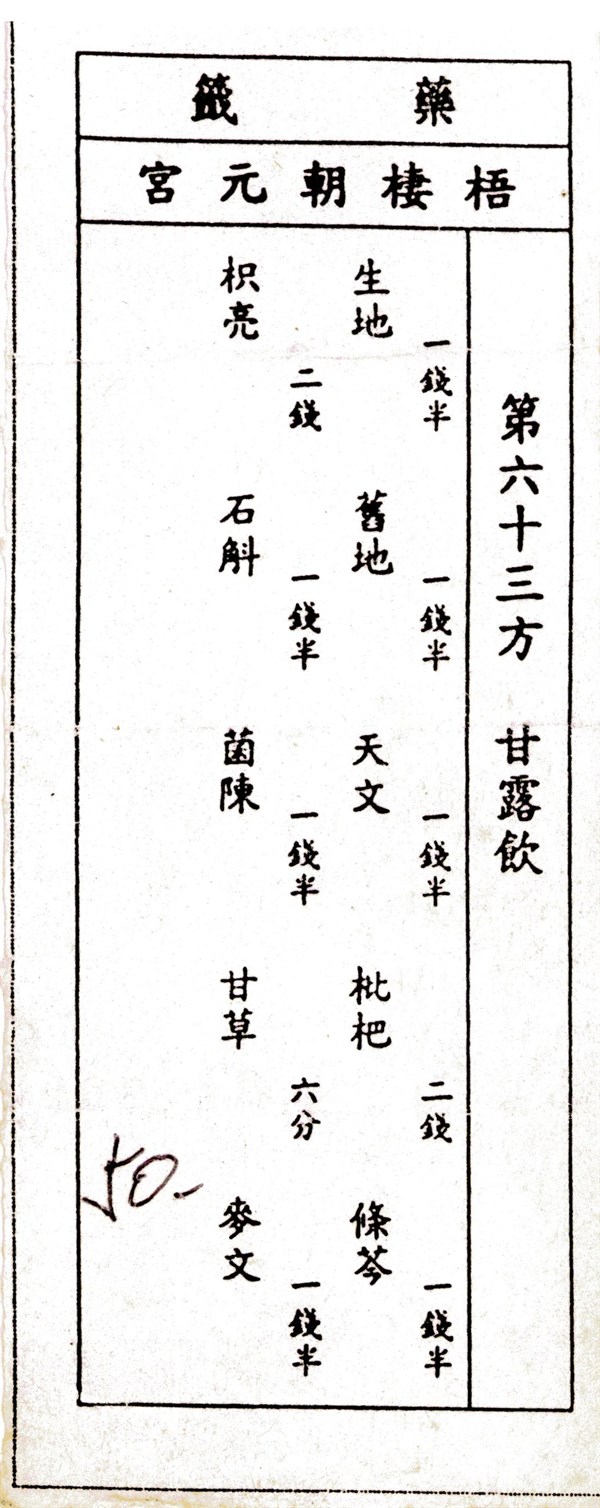 藥籤
梧棲朝元宮
第六十三方 甘露飲
一錢半 一錢半 一錢半 二錢 一錢半
生地 舊地 天文 枇杷 條芩
二錢 一錢半 一錢半 六分 一錢半
枳亮 石斛 茵陳 甘草 麥文
50.-